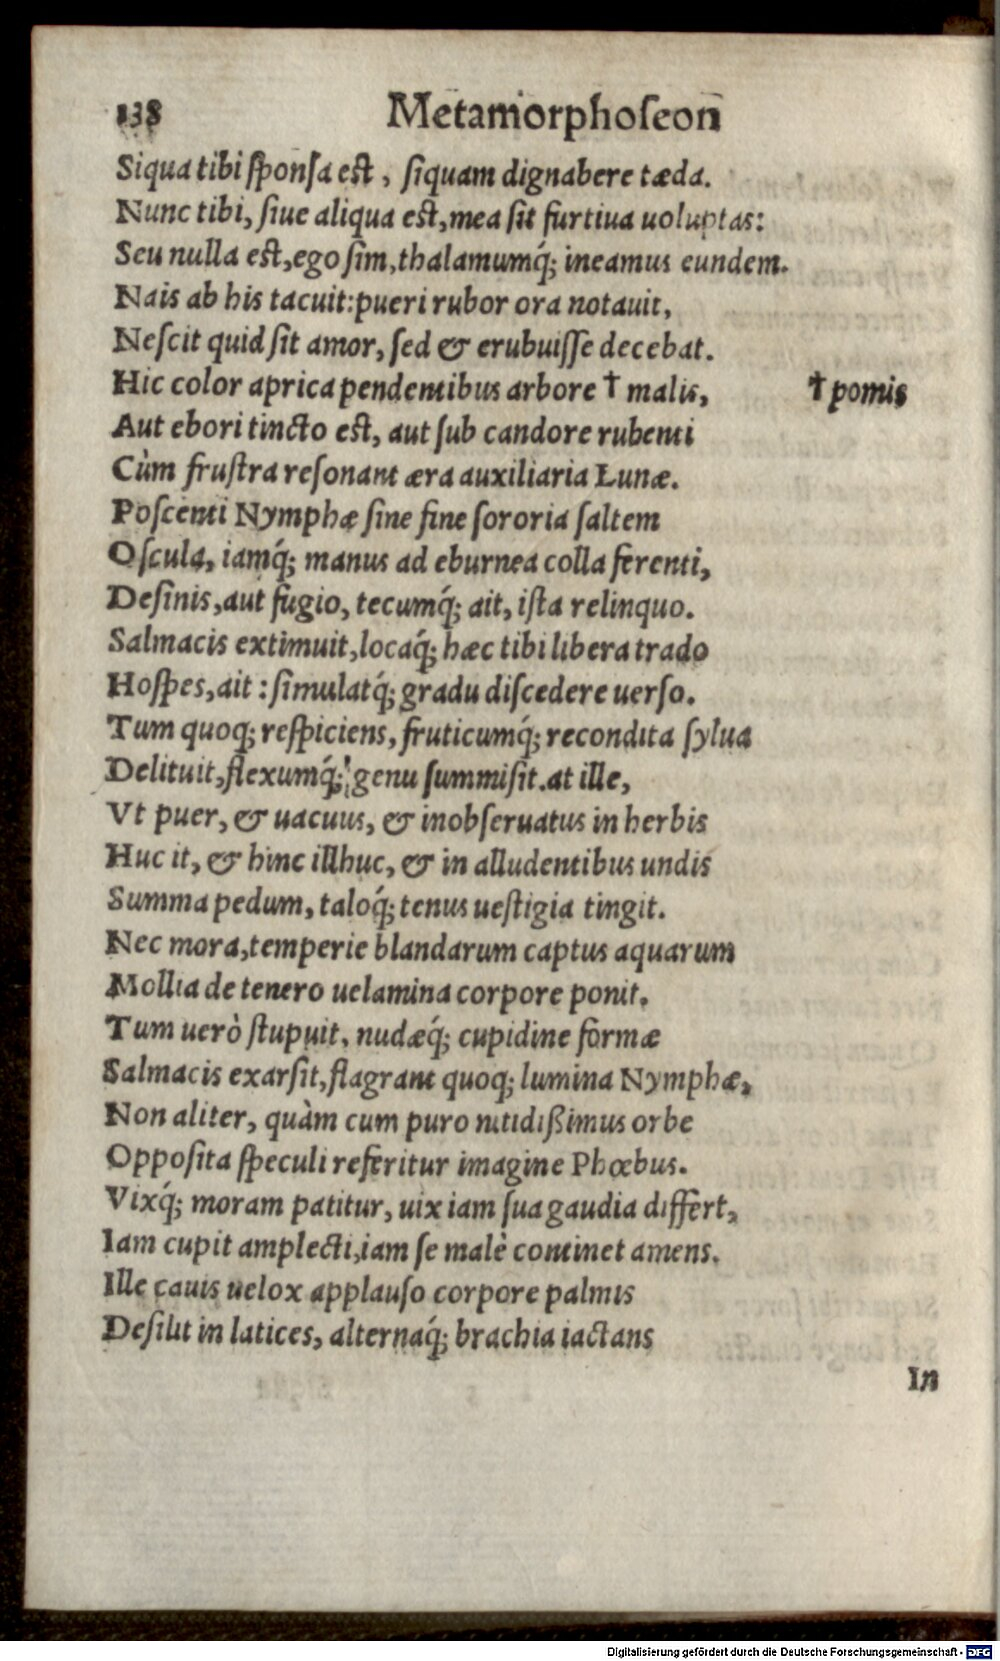 138 Metamorphoſeon
Siqua tibi ſponſa eſt, ſiquam dignabere tæda.
Nunc tibi, ſiue aliqua eſt, mea ſit furtiua uoluptas:
Seu nulla eſt, ego ſim, thalamumq́; ineamus eundem.
Nais ab his tacuit: pueri rubor ora notauit,
Neſcit quid ſit amor, ſed & erubuiſſe decebat.
Hic color aprica pendentibus arbore † malis, † pomis
Aut ebori tincto eſt, aut ſub candore rubenti
Cùm fruſtra reſonant æra auxiliaria Lunæ.
Poſcenti Nymphæ ſine fine ſororia ſaltem
Oſcula, iamq́; manus ad eburnea colla ferenti,
Deſinis, aut fugio, tecumq́; ait, iſta relinquo.
Salmacis extimuit, locaq́; hæc tibi libera trado
Hoſpes, ait: ſimulatq́; gradu diſcedere uerſo.
Tum quoq; reſpiciens, fruticumq́; recondita ſylua
Delituit, flexumq́; genu ſummiſit. at ille,
Vt puer, & uacuus, & inobſeruatus in herbis
Huc it, & hinc illhuc, & in alludentibus undis
Summa pedum, taloq́; tenus ueſtigia tingit.
Nec mora, temperie blandarum captus aquarum
Mollia de tenero uelamina corpore ponit.
Tum uerò ſtupuit, nudæq́; cupidine formæ
Salmacis exarſit, flagrant quoq; lumina Nymphæ,
Non aliter, quàm cum puro nitidißimus orbe
Oppoſita ſpeculi referitur imagine Phœbus.
Vixq́; moram patitur, uix iam ſua gaudia differt,
Iam cupit amplecti, iam ſe malè continet amens.
Ille cauis uelox applauſo corpore palmis
Deſilit in latices, alternaq́; brachia iactans
In
Digitalisierung gefördert durch die Deutsche Forschungsgemeinschaft - DFG